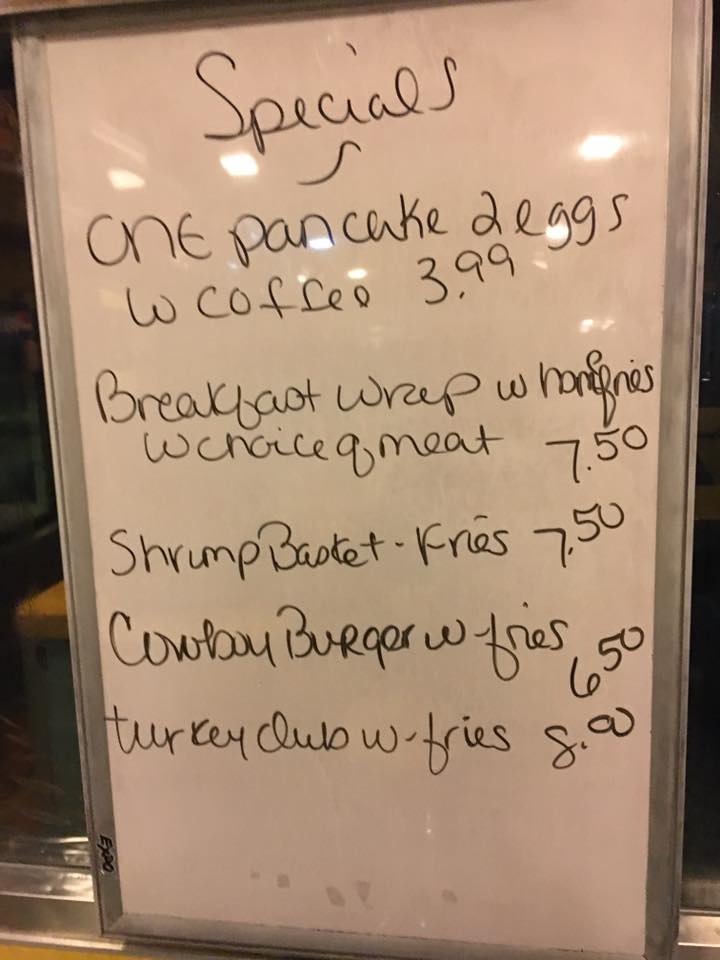 Specials
One pancake 2 eggs
w coffee 3.99
Breakfast wrap w homefries
w choice of meat 7.50
Shrimp Basket - Fries 7.50
Cowboy Burger w-fries 6.50
turkey club w-fries 8.00
EXPO